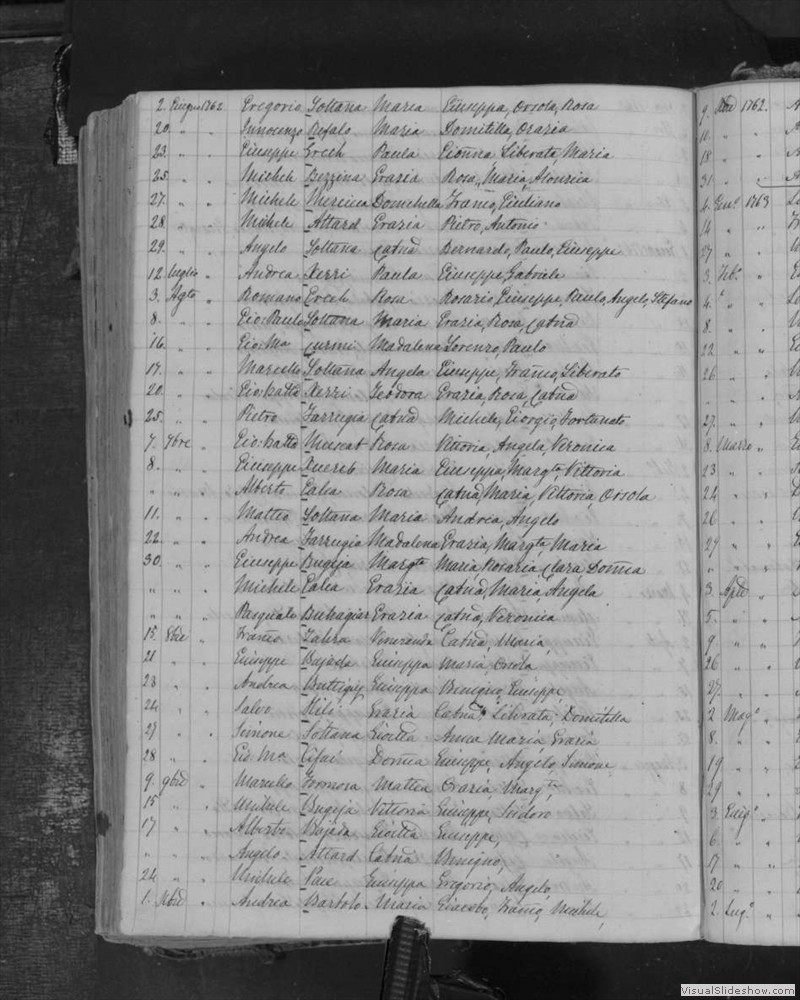 2. Giugno 1762 Gregorio Soltana Maria Giuseppa, Orsola, Rosa
20. " " Innocenzo Refalo Maria Domitilla, Grazia
23. " " Giuseppe Grech Paula Gionna Liberata, Maria
25. " " Michele Bezzina Grazia Rosa, Maria,
27. " " Michele Mercieca Domitilla Franco, Giuliano
28. " " Michele Attard Grazia Pietro, Antonio
29. " " Angelo Soltana Catna Bernardo, Paulo, Giuseppe
12. Luglio " Andrea Xerri Paula Giuseppe, Gabriele
3. Agto " Romano Grech Rosa Rosario Giuseppe, Paulo, Angelo, Stefano
8. " " Gio: Paulo Soltana Maria Grazia, Rosa, Catna
16. " " Gio: Ma Curmi Madalena Lorenzo, Paulo
17. " " Marcello Soltana Angela Giuseppe, Franco, Liberato
20. " " Gio: Batta Xerri Teodora Grazia, Rosa, Catna
25. " " Pietro Farrugia Catna Michele, Giorgio, Fortunato
7. 7bre " Gio: Batta Muscat Rosa Vittoria, Angela, Veronica
8. " " Giuseppe Xuereb Maria Giuseppa, Margta, Vittoria
" " " Alberto Galea Rosa Catna, Maria, Vittoria, Orsola
11. " " Matteo Soltana Maria Andrea, Angelo
22. " " Andrea Farrugia Madalena Grazia, Margta, Maria
30. " " Giuseppe Bugeja Margta Maria Rosaria, Clara Domca
" " " Michele Galea Grazia Catna, Maria, Angela
" " " Pasquale Buhagiar Grazia Catna, Veronica
15. 8bre " Franco Zahra Veneranda Catna, Maria
21 " " Giuseppe Bajada Giuseppa Maria, Orsola
23 " " Andrea Buttigieg Giuseppa Benigno, Giuseppe
24 " " Salvo Grazia Catna, Liberata, Domitilla
27 " " Simone Soltana Gioitta Anna Maria Grazia
28 " " Gio: Ma Domca Giuseppe, Angelo, Simone
9. 9bre " Marcello Formosa Mattea Grazia Margta
15 " " Michele Bugeja Vittoria Giuseppe, Isidoro
17 " " Alberto Bajada Gioitta Giuseppe,
" " " Angelo Attard Catna Benigno,
24 " " Michele Pace Giuseppa Gregorio, Angelo
1. Xbre " Andrea Bartolo Maria Giacobo, Franco, Michele,
9. Xbre 1762.
11. " "
18 " "
31 " "
4. Gen° 1763
14 " "
27 " "
3. Feb° "
4. "
8. " "
22 " "
26 " "
" " "
27. " "
8. Marzo "
23 " "
24 " "
26 " "
27 " "
" " "
3. Aple "
5. " "
9 " "
26 " "
27. " "
2 Mag° "
8. " "
19 " "
29 " "
3. Giug° "
6. " "
17 " "
20 " "
2. Lug° "
VisualSlideshow.com